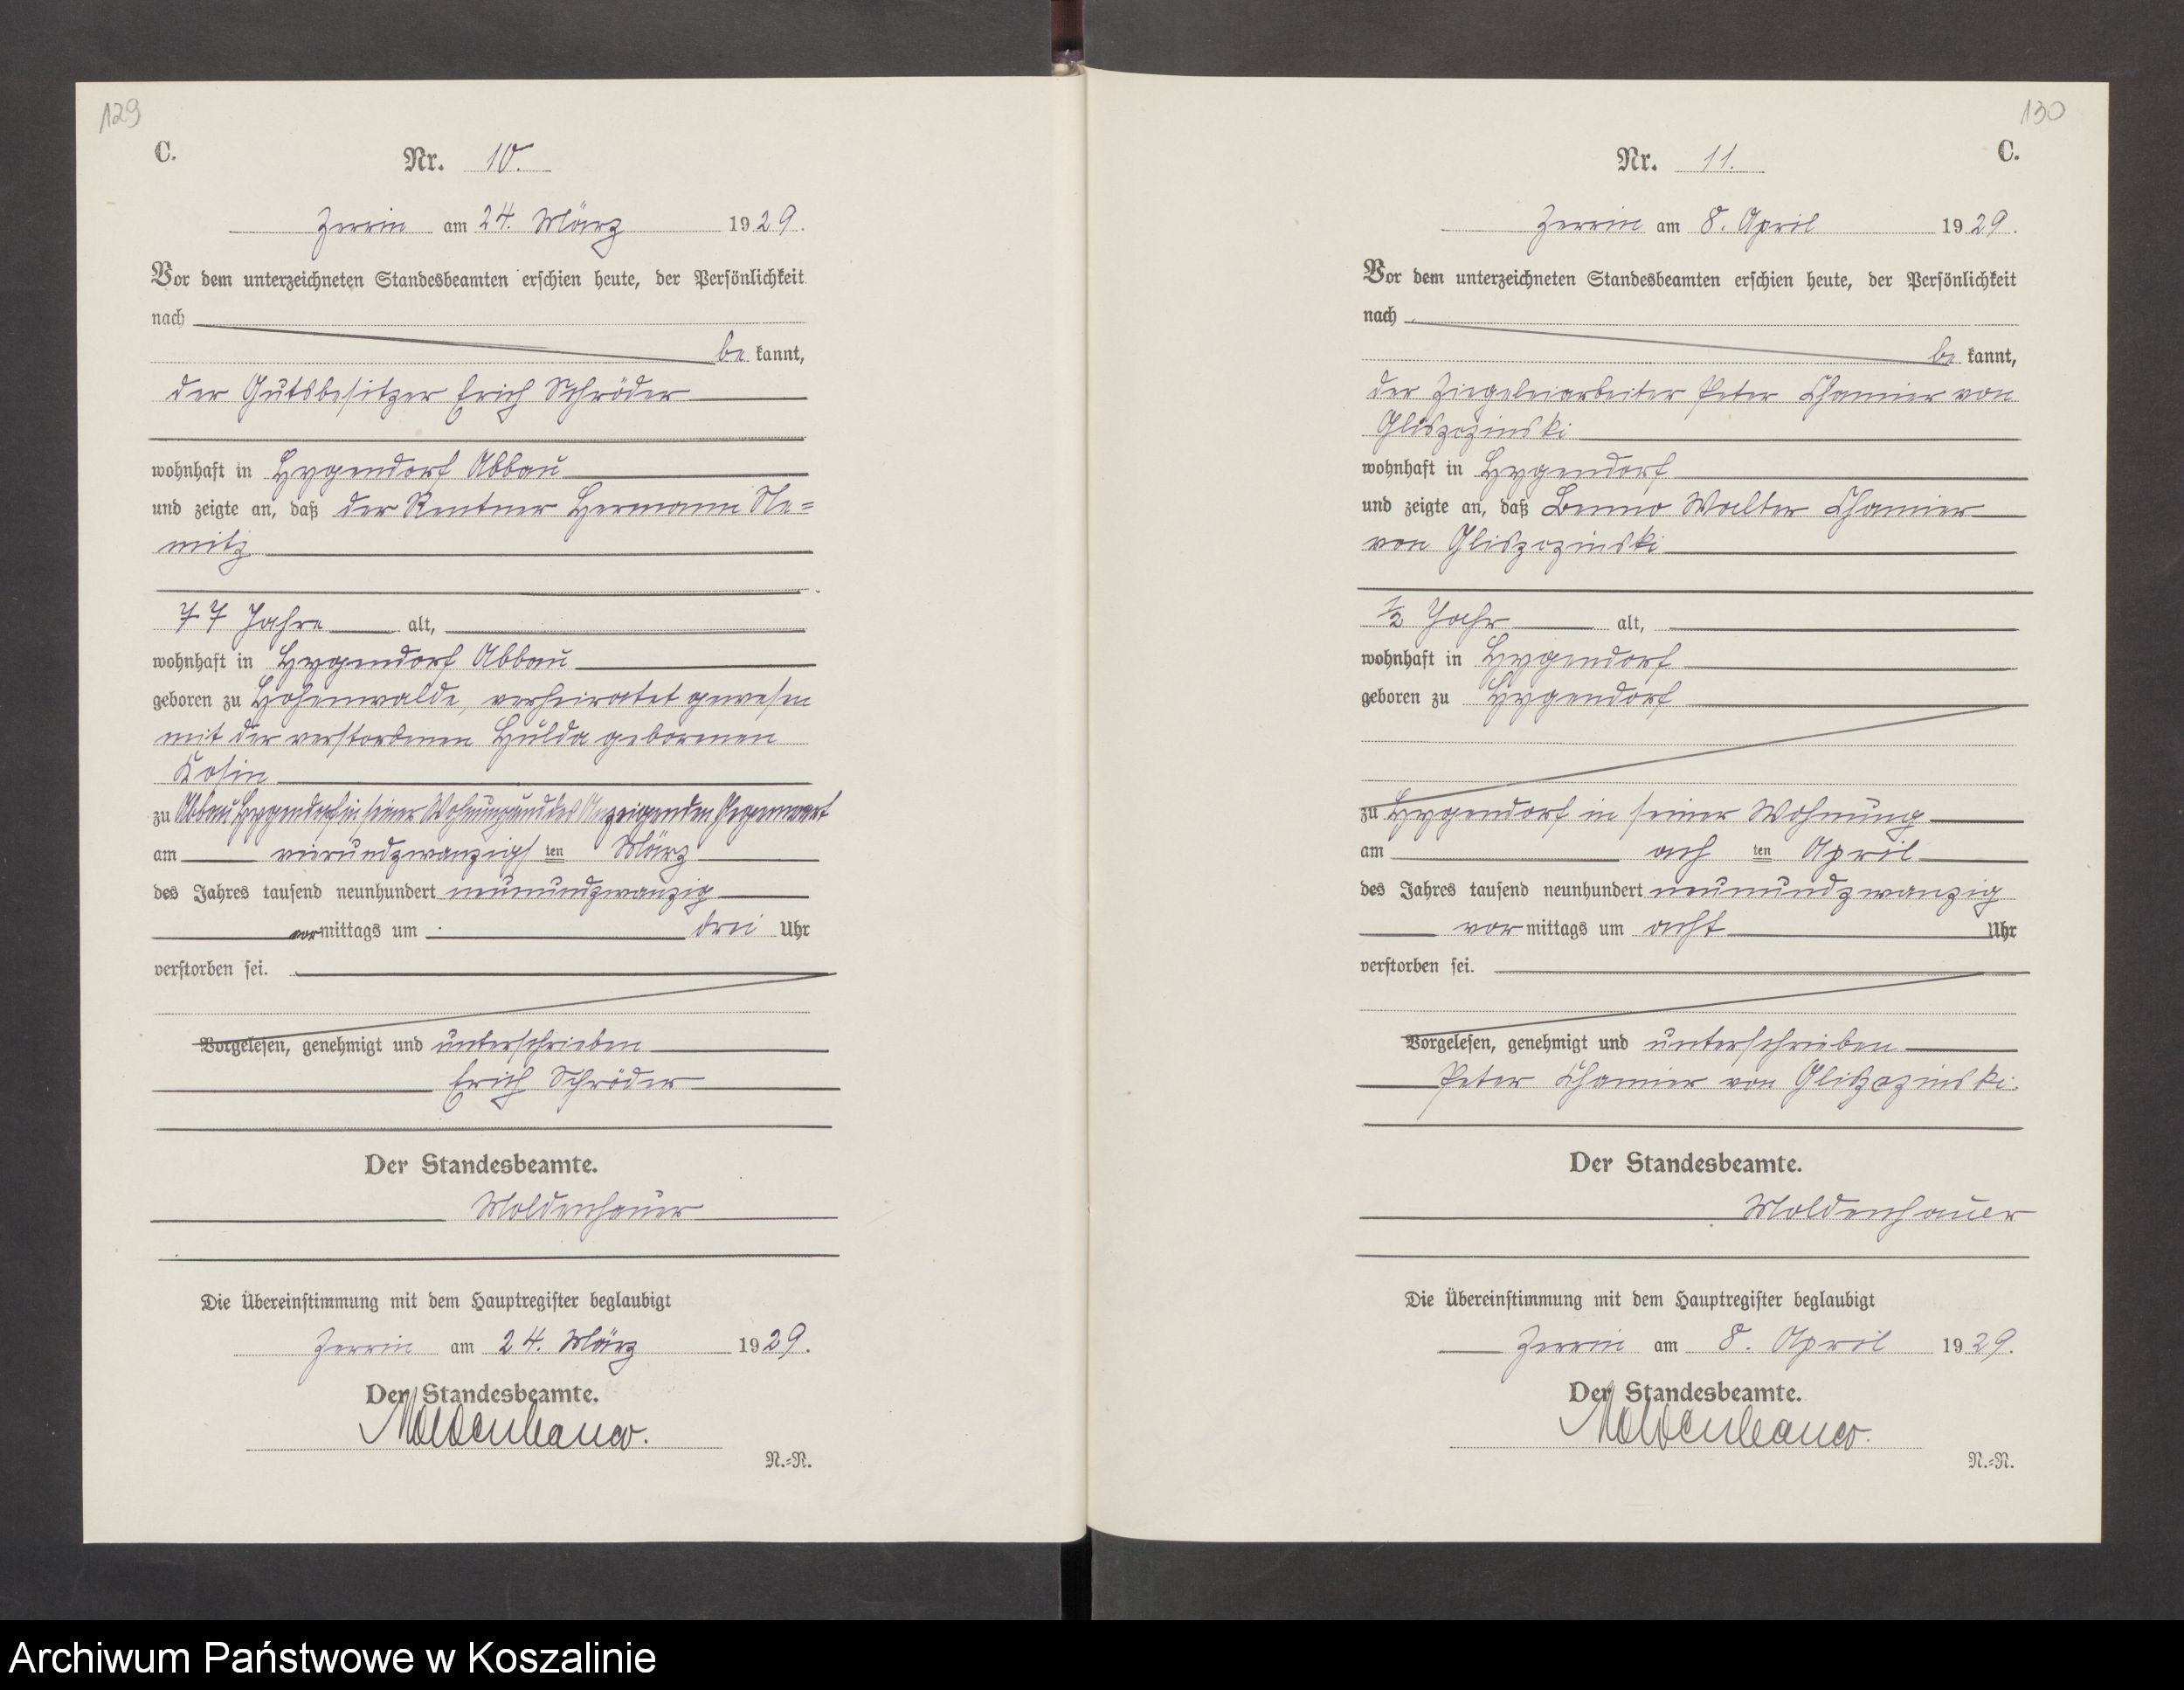 129
C.
Nr. 10.
Zerrin am 24. März 1929.
Vor dem unterzeichneten Standesbeamten erschien heute, der Persönlichkeit
nach
be kannt,
der Gutsbesitzer Erich Schröder
wohnhaft in Hygendorf Abbau
und zeigte an, daß der Rentner Hermann Ne=
mitz
77 Jahre alt,
wohnhaft in Hygendorf Abbau
geboren zu Hohenwalde, verheiratet gewesen
mit der verstorbenen Hulda geborenen
Kosin
zu Abbau Hygendorf in seiner Wohnung und des Anzeigenden Gegenwart
am vierundzwanzigs ten März
des Jahres tausend neunhundert neunundzwanzig
vormittags um drei Uhr
verstorben sei.
Vorgelesen, genehmigt und unterschrieben
Erich Schröder
Der Standesbeamte.
Moldenhauer
Die Übereinstimmung mit dem Hauptregister beglaubigt
Zerrin am 24. März 1929.
Der Standesbeamte.
Moldenhauer.
N.=N.
130
Nr. 11.
C.
Zerrin am 8. April 1929.
Vor dem unterzeichneten Standesbeamten erschien heute, der Persönlichkeit
nach
be kannt,
der Ziegeleiarbeiter Peter Chamier von
Gliszczinski
wohnhaft in Hygendorf
und zeigte an, daß Benno Walter Chamier
von Gliszczinski
½ Jahr alt,
wohnhaft in Hygendorf
geboren zu Hygendorf
zu Hygendorf in seiner Wohnung
am ach ten April
des Jahres tausend neunhundert neunundzwanzig
vor mittags um acht Uhr
verstorben sei.
Vorgelesen, genehmigt und unterschrieben
Peter Chamier von Gliszczinski.
Der Standesbeamte.
Moldenhauer
Die Übereinstimmung mit dem Hauptregister beglaubigt
Zerrin am 8. April 1929.
Der Standesbeamte.
Moldenhauer.
N.=N.
Archiwum Państwowe w Koszalinie